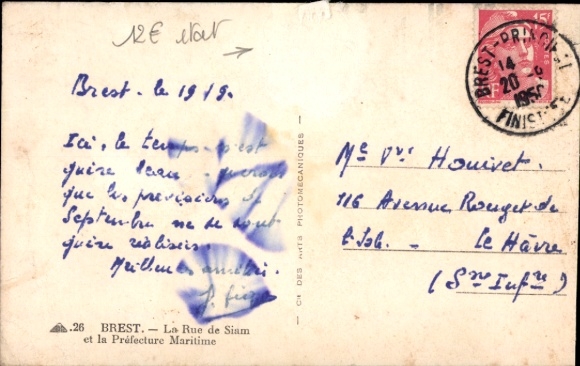 12€
Brest. le 19/9.
Ici, le temps n'est
guère beau
que les prévisions de
Septembre ne se sont
guère réalisées.
Meilleures amitiés.
26 BREST. — La Rue de Siam
et la Préfecture Maritime
CIE DES ARTS PHOTOMÉCANIQUES
15F
BREST-PRINCIPAL
14
20 - 9
1950
FINISTÈRE
Houivet.
116 Avenue Rouget de
Le Hâvre
(Sne Infre)